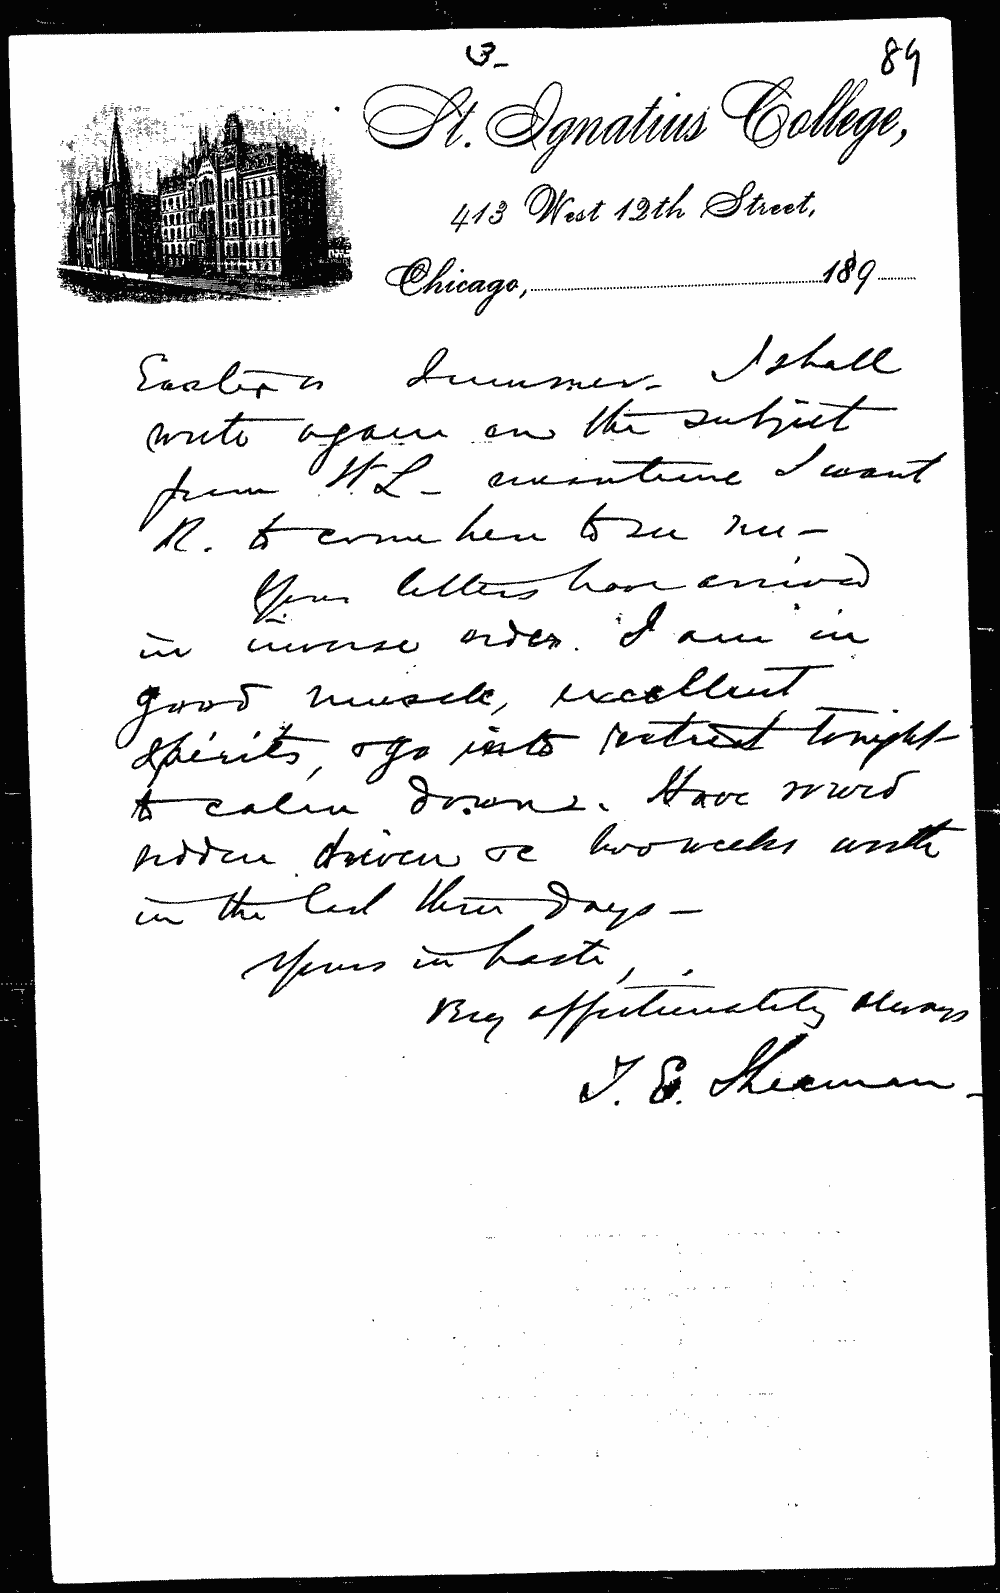 3-
89
St. Ignatius College,
413 West 12th Street,
Chicago, 189
Easter or Summer - I shall
write again on the subject
from W. L - meantime I want
R. to come here to see me -
Your letters have arrived
in inverse order. I am in
good muscle, excellent
spirits, & go into retreat tonight
to calm down. Have rowed
ridden driven &c two weeks worth
in the last three days -
Yours in haste,
Very affectionately always
T. E. Sherman -